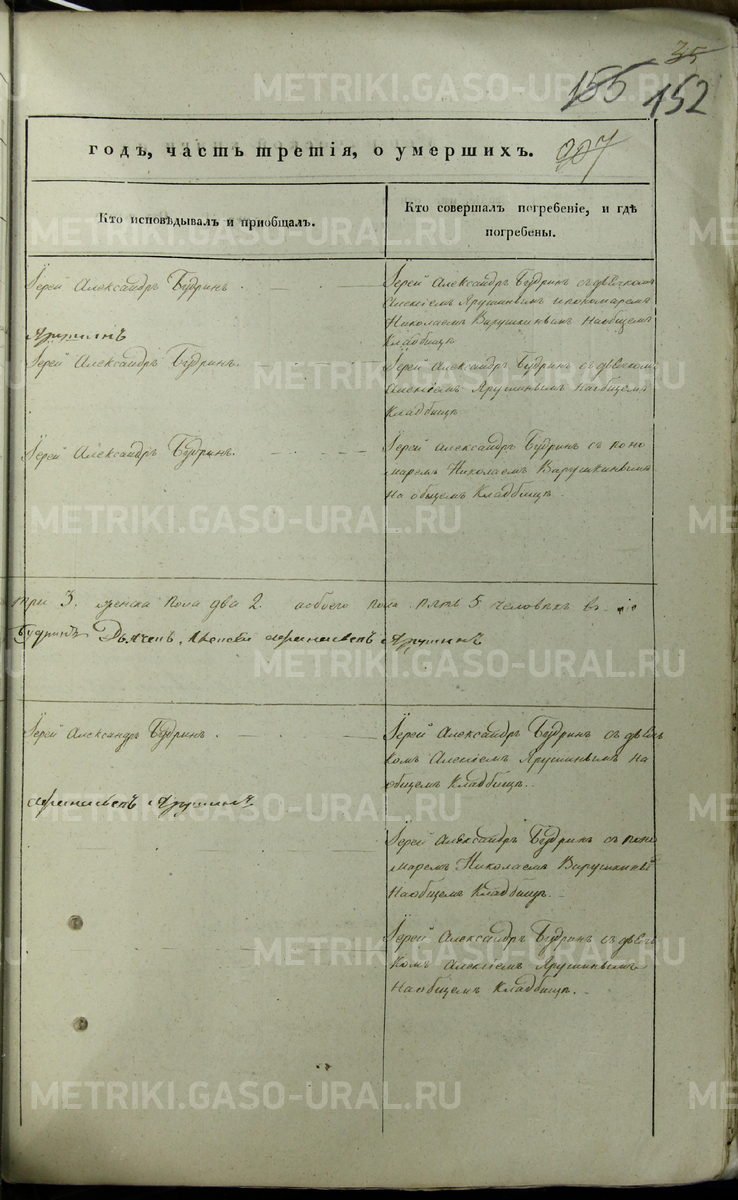 35
155 152
годъ, часть третія, о умершихъ. 207
Кто исповѣдывалъ и пріобщалъ.
Кто совершалъ погребеніе, и гдѣ
погребены.
Іерей Александръ Будринъ.
Іерей Александръ Будринъ съ дьячкомъ
Алексіемъ Ярушинымъ и пономаремъ
Николаемъ Варушкинымъ на общемъ
Кладбищѣ
Ярушинъ
Іерей Александръ Будринъ.
Іерей Александръ Будринъ съ дьячкомъ
Алексіемъ Ярушинымъ на общемъ
Кладбищѣ
Іерей Александръ Будринъ.
Іерей Александръ Будринъ съ поно
маремъ Николаемъ Варушкинымъ
на общемъ Кладбищѣ.
три 3. женска пола два 2. обоего пола пять 5 человѣкъ
Будринъ Дьячекъ Ярушинъ
Іерей Александръ Будринъ.
Іерей Александръ Будринъ съ дьяч
комъ Алексіемъ Ярушинымъ на
общемъ Кладбищѣ.
Ярушинъ
Іерей Александръ Будринъ съ поно
маремъ Николаемъ Варушкины
на общемъ Кладбищѣ.
Іерей Александръ Будринъ съ дьяч
комъ Алексіемъ Ярушинымъ
на общемъ Кладбищѣ.
METRIKI.GASO-URAL.RU